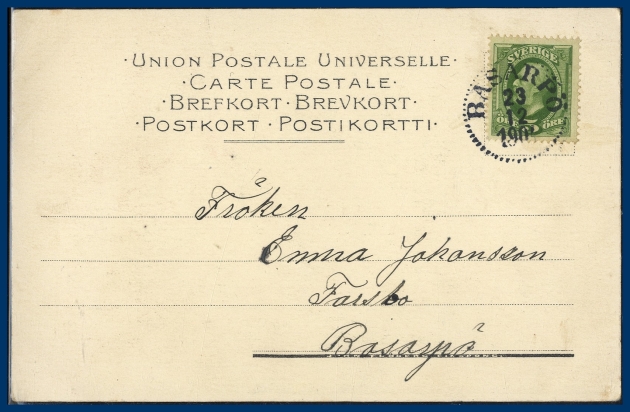 ·UNION POSTALE UNIVERSELLE·
·CARTE POSTALE·
·BREFKORT·BREVKORT·
·POSTKORT·POSTIKORTTI·
SVERIGE
ÖRE
BASARPÖ
23
12
190
Fröken
Emma Johansson
Farsbo
Basarpö